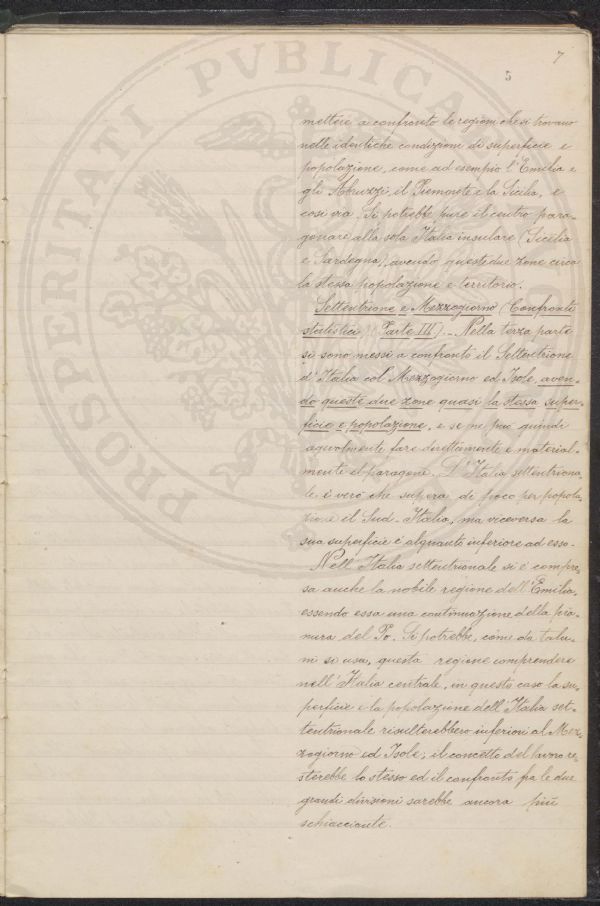 7
5
PROSPERITATI PVBLICAE
mettere a confronto le regioni che si trovano
nelle identiche condizioni di superficie e
popolazione, come ad esempio l'Emilia e
gli Abruzzi, il Piemonte e la Sicilia, e
così via. Si potrebbe pure il centro para-
gonare alla sola Italia insulare (Sicilia
e Sardegna), avendo queste due zone circa
la stessa popolazione e territorio.
Settentrione e Mezzogiorno (Confronti
statistici Parte III). - Nella terza parte
si sono messi a confronto il Settentrione
d'Italia col Mezzogiorno ed Isole, aven-
do queste due zone quasi la stessa super-
ficie e popolazione, e se ne può quindi
agevolmente fare direttamente e material-
mente il paragone. L'Italia settentriona-
le è vero che supera di poco per popola-
zione il Sud-Italia, ma viceversa la
sua superficie è alquanto inferiore ad esso.
Nell'Italia settentrionale si è compre-
sa anche la nobile regione dell'Emilia,
essendo essa una continuazione della pia-
nura del Po. Si potrebbe, come da talu-
ni si usa, questa regione comprendere
nell'Italia centrale, in questo caso la su-
perficie e la popolazione dell'Italia set-
tentrionale risulterebbero inferiori al Mez-
zogiorno ed Isole; il concetto del lavoro re-
sterebbe lo stesso ed il confronto fra le due
grandi divisioni sarebbe ancora più
schiacciante.